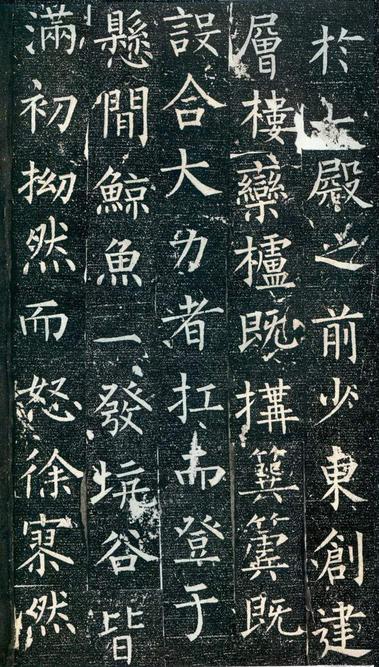 於殿之前少東創建
層樓欒櫨既搆簨簴既
設合大力者扛而登于
懸閒鯨魚一發坑谷皆
滿初拗然而怒徐寥然